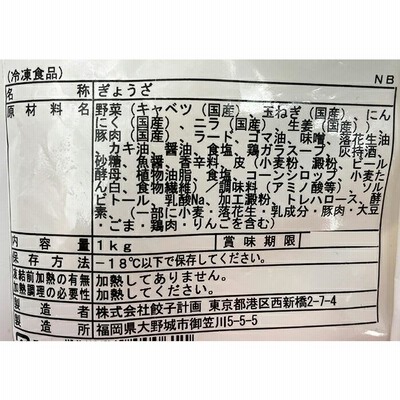 (冷凍食品)
NB
名 称 ぎょうざ
原材料名 野菜(キャベツ(国産)、玉ねぎ(国産)、にん
にく(国産)、ニラ(国産)、生姜(国産))、
豚肉(国産)、ラード、ゴマ油、味噌、落花生油
、カキ油、醤油、食塩、鶏ガラスープ、灰持酒、
砂糖、魚醤、香辛料、皮(小麦粉、澱粉、ビール
酵母、植物油脂、食塩、コーンシロップ、小麦た
ん白、食物繊維)/調味料(アミノ酸等)、ソル
ビトール、乳酸Na、加工澱粉、トレハロース、酵
素、(一部に小麦・落花生・乳成分・豚肉・大豆
・ごま・鶏肉・りんごを含む)
内容量 1kg 賞味期限
保存方法 -18℃以下で保存してください。
凍結前加熱の有無 加熱してありません。
加熱調理の必要性 加熱してください。
製造者 株式会社餃子計画 東京都港区西新橋2-7-4
製造所 福岡県大野城市御笠川5-5-5